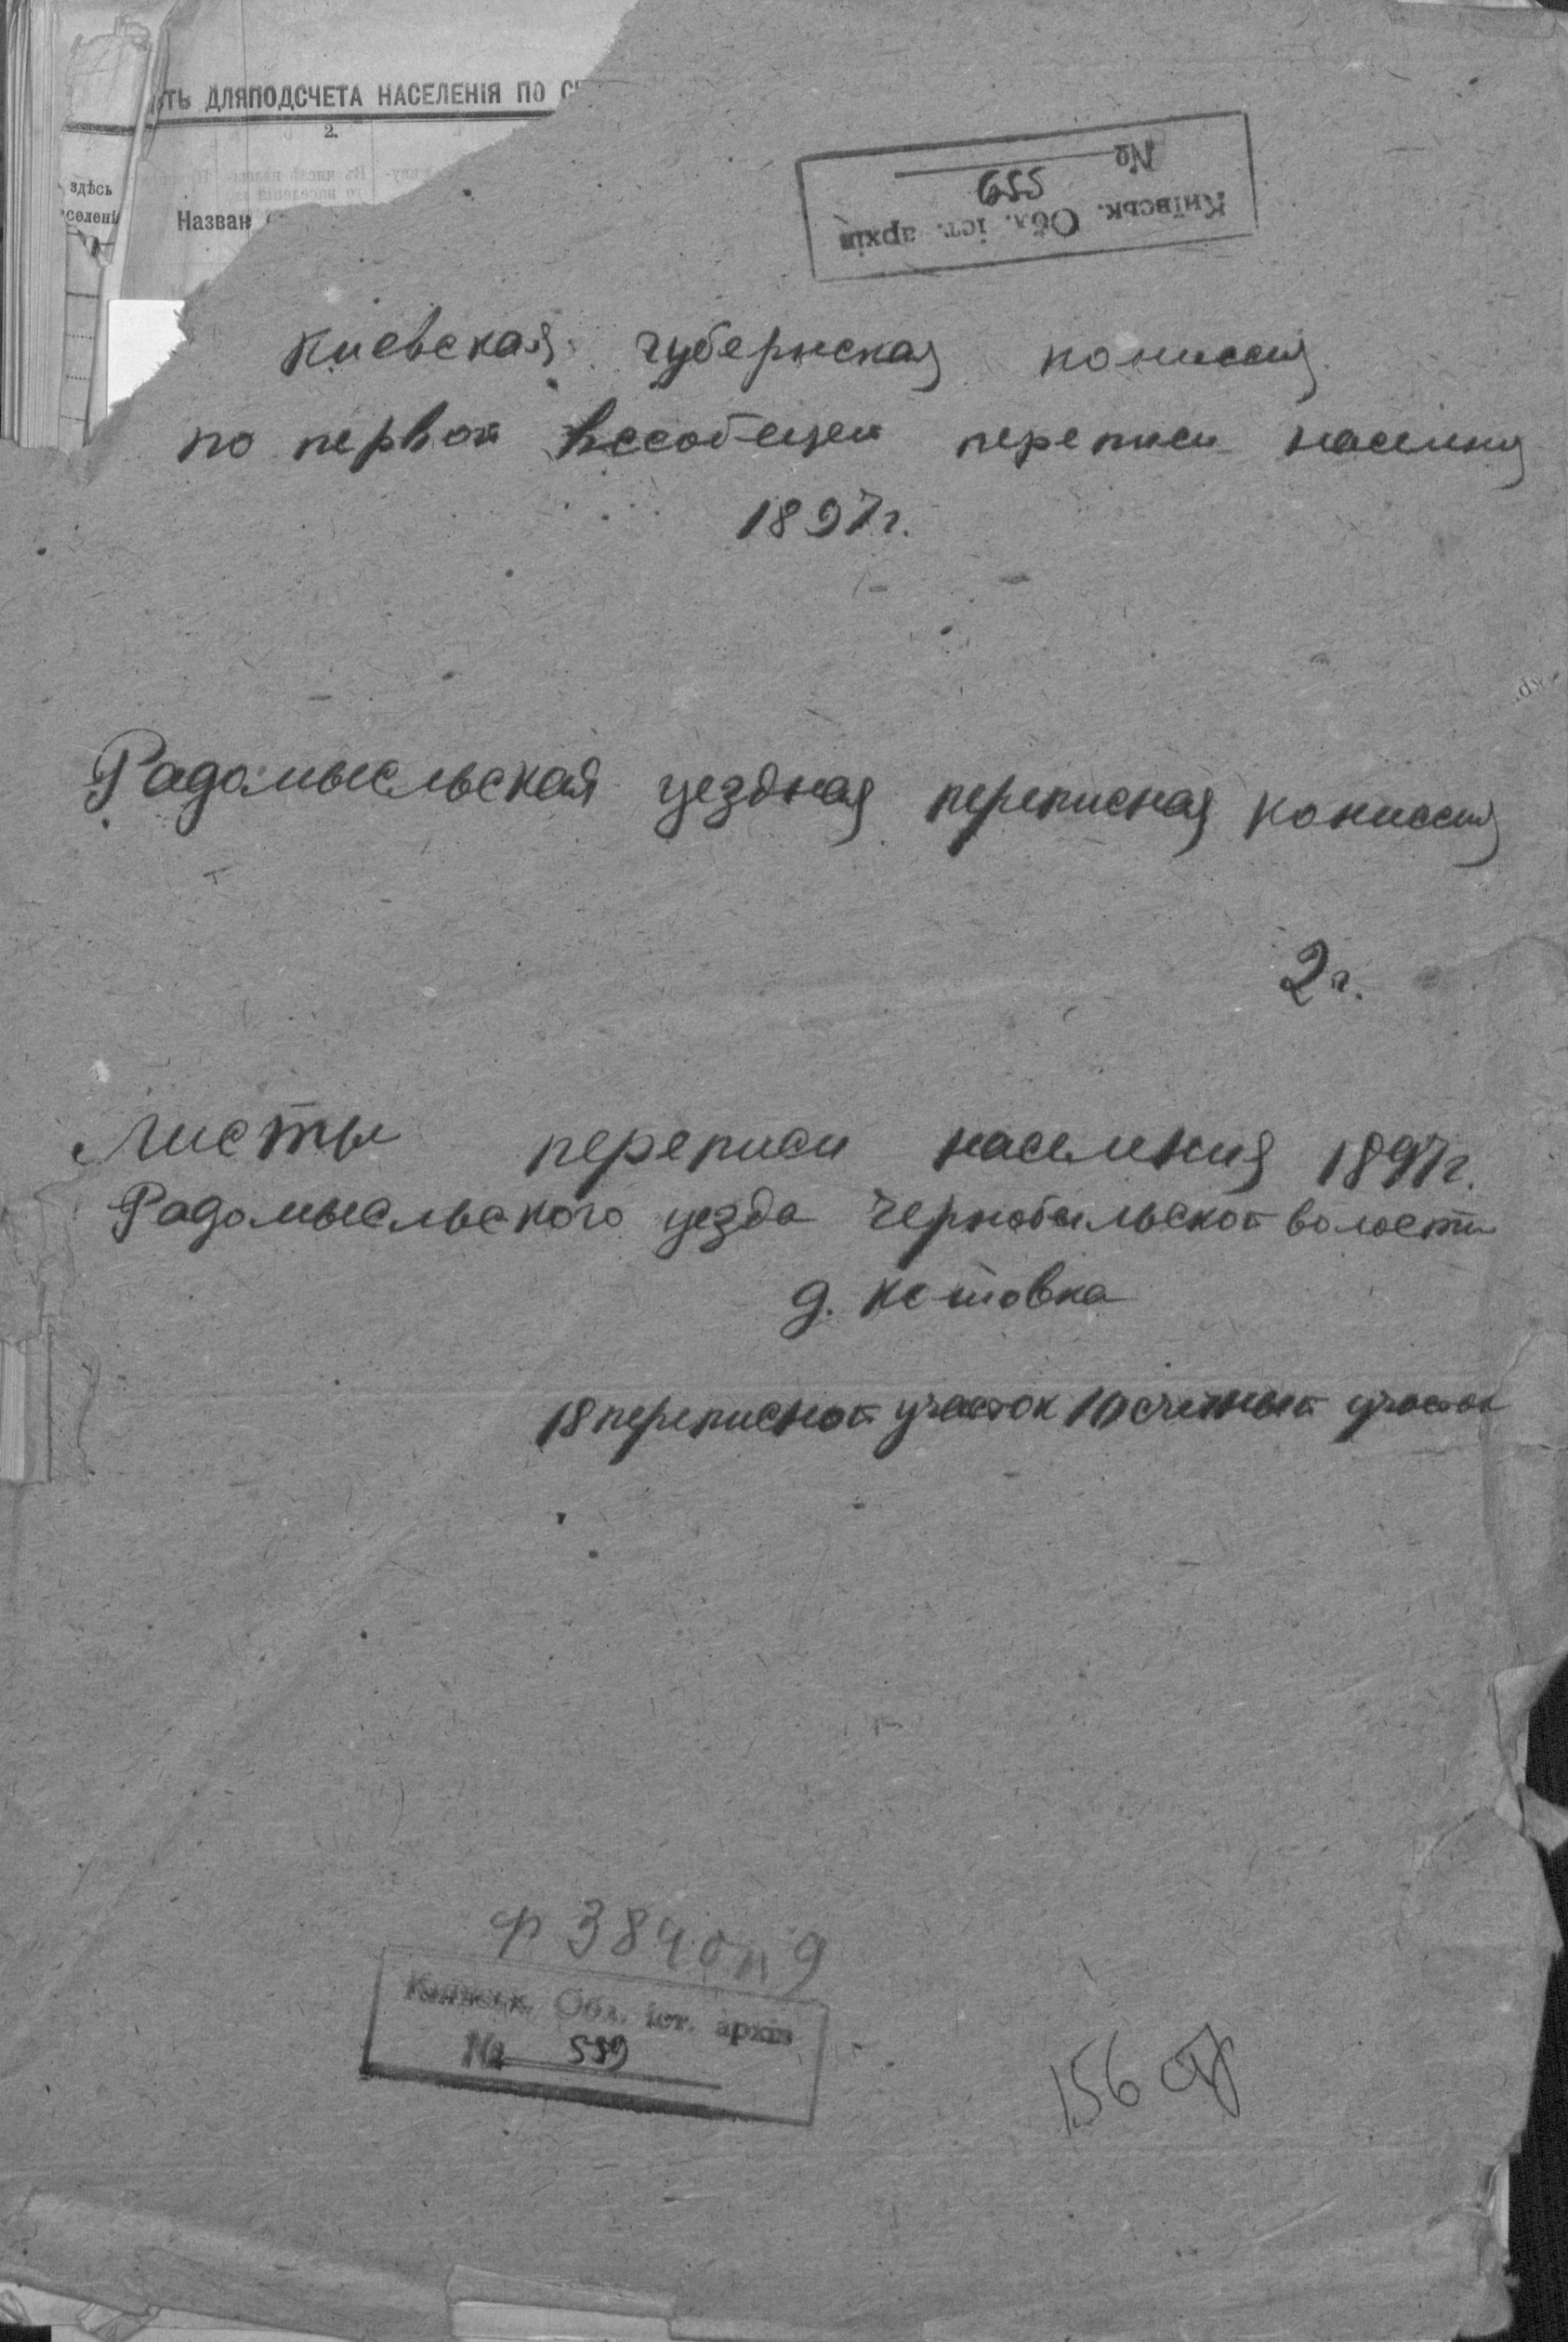 ТЬ ДЛЯ ПОДСЧЕТА НАСЕЛЕНІЯ ПО С
2.
здѣсь
селені
Назван
№
655
Київськ. Обл. іст. архів
Киевская губернская комиссия
по первой всеобщей переписи населения
1897г.
Радомысльская уездная переписная комиссия
2г.
Листы переписи населения 1897г.
Радомысльского уезда Чернобыльской волости
д.
18 переписной участок 10 счетный участок
ф 384 оп 9
Київськ. Обл. іст. архів
№ 559
156